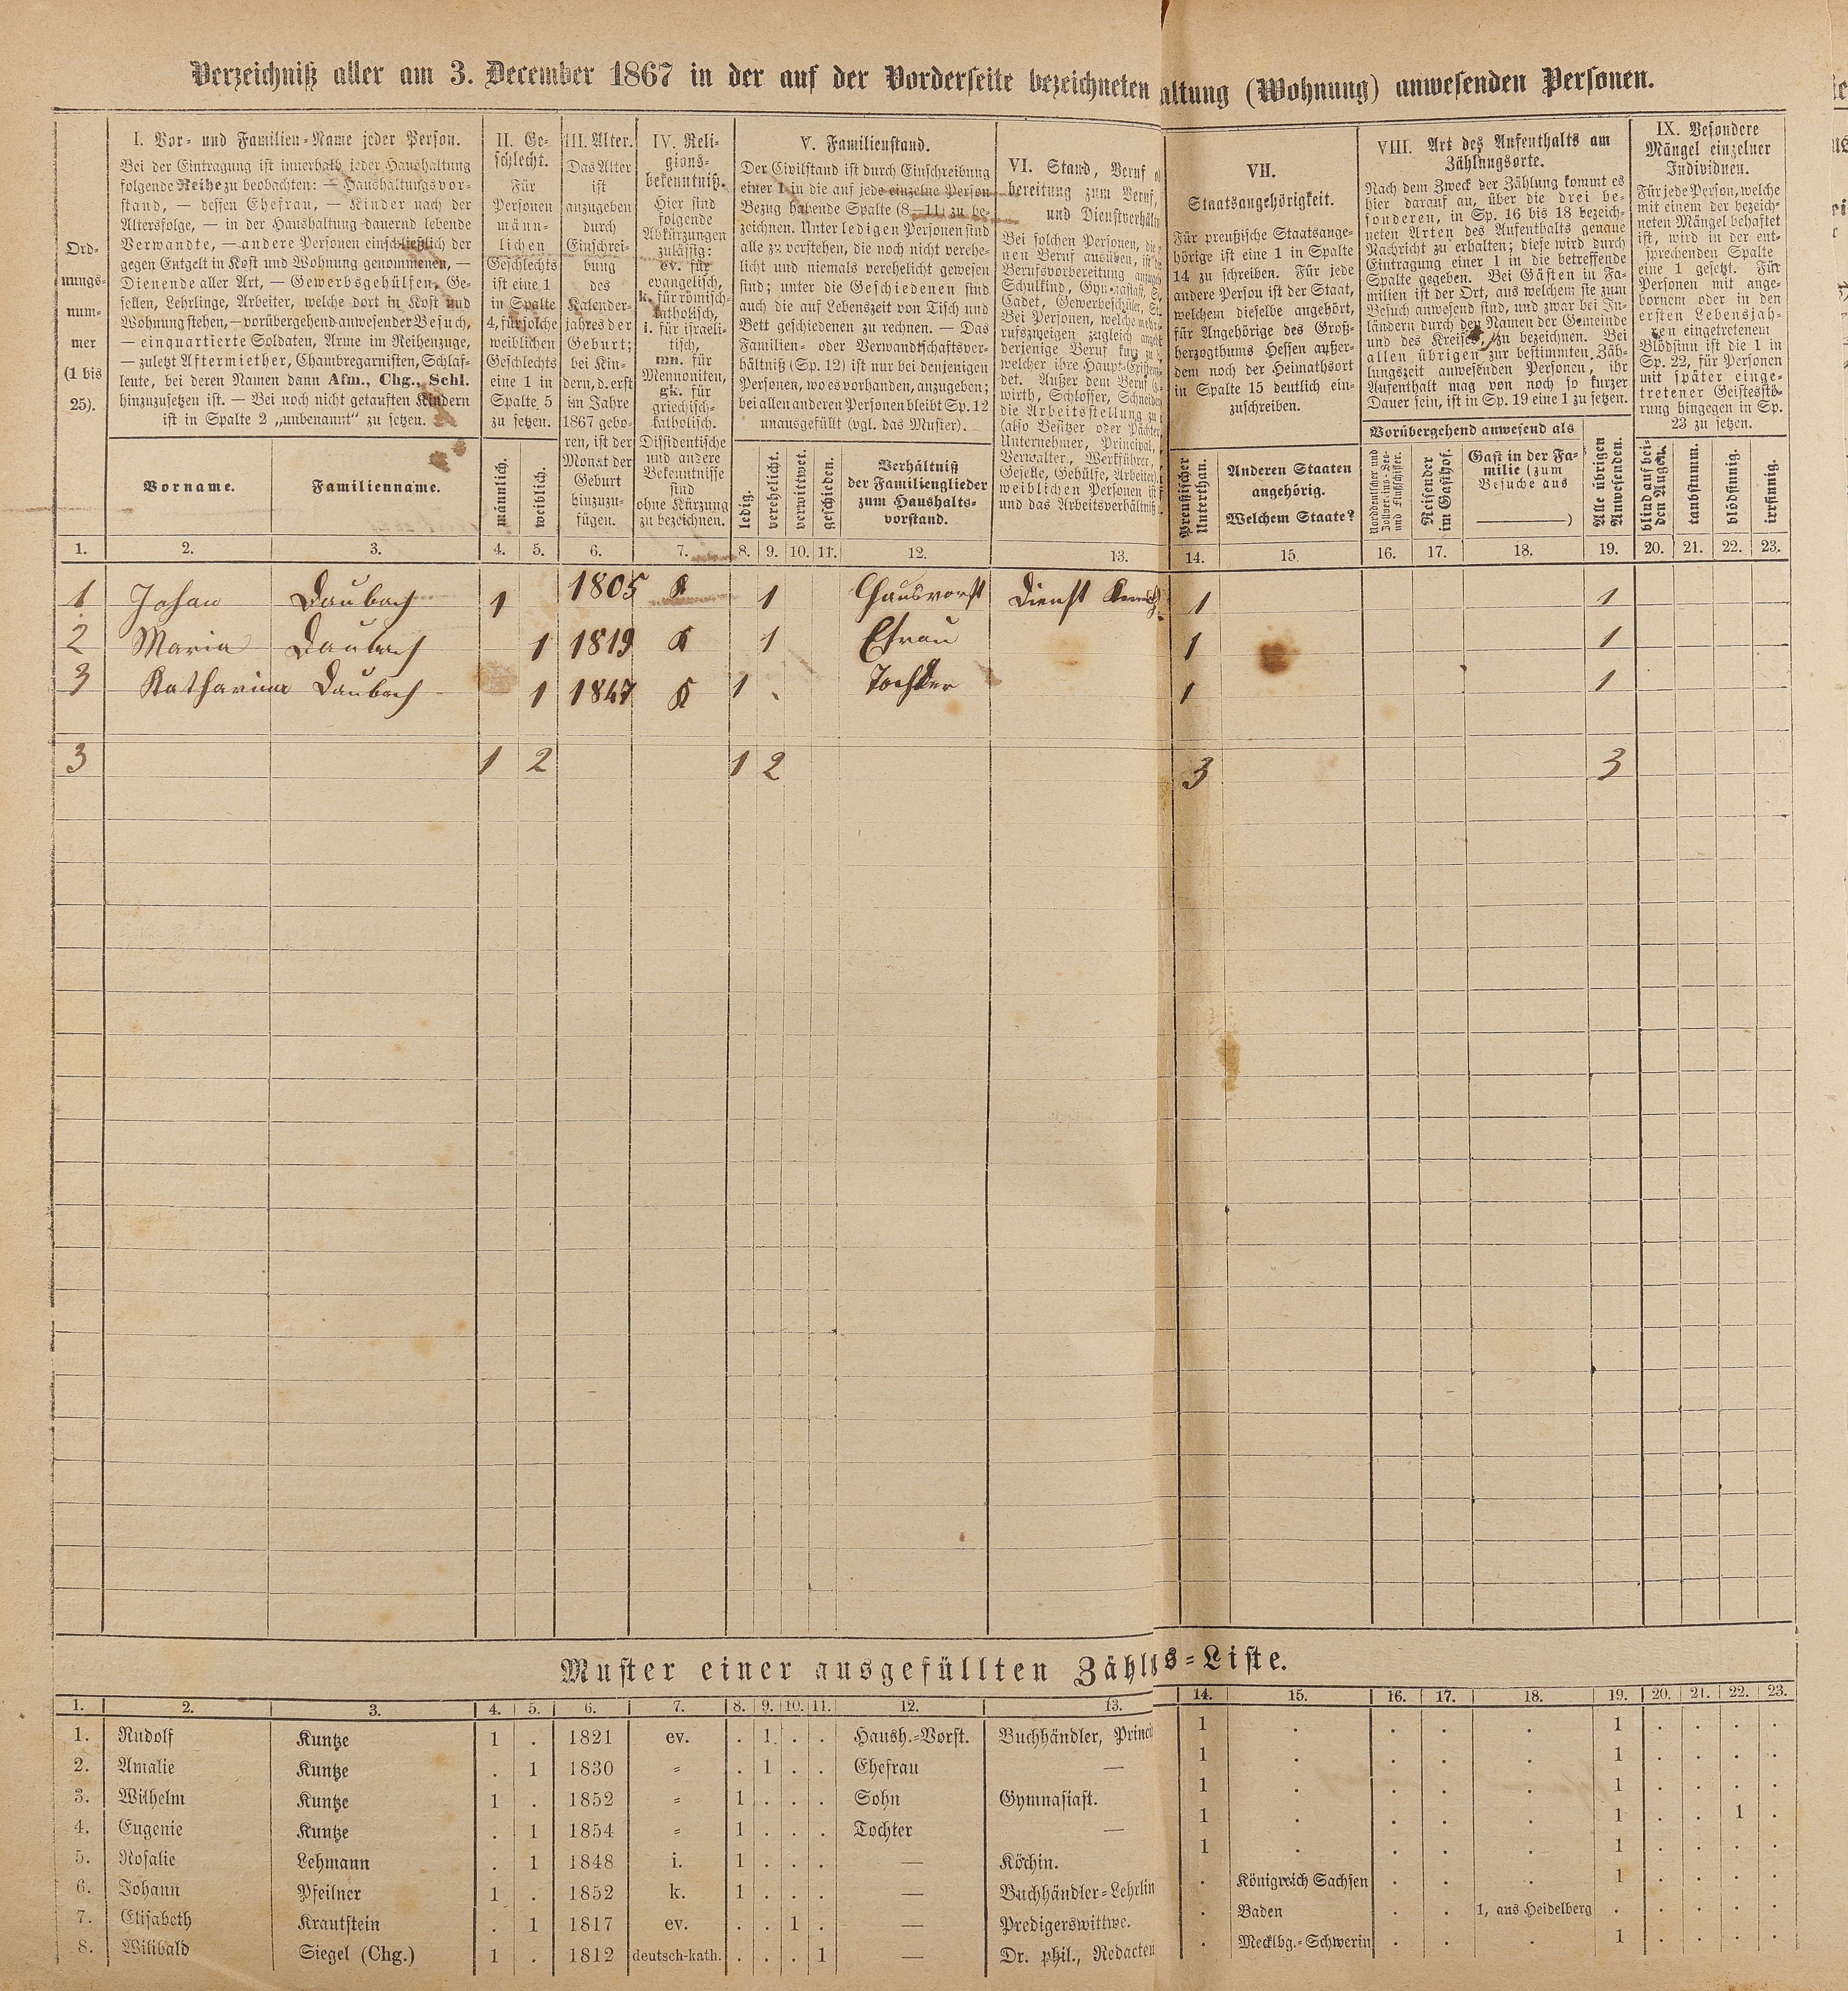 Verzeichniß aller am 3. December 1867 in der auf der Vorderseite bezeichneten altung (Wohnung) anwesenden Personen.
Ord-
nungs-
num-
mer
(1 bis
25).
I. Vor- und Familien-Name jeder Person.
Bei der Eintragung ist innerhalb jeder Haushaltung
folgende Reihe zu beobachten: — Haushaltungsvor-
stand, — dessen Ehefrau, — Kinder nach der
Altersfolge, — in der Haushaltung dauernd lebende
Verwandte, — andere Personen einschließlich der
gegen Entgelt in Kost und Wohnung genommenen, —
Dienende aller Art, — Gewerbsgehülfen, Ge-
sellen, Lehrlinge, Arbeiter, welche dort in Kost und
Wohnung stehen, — vorübergehend anwesender Besuch,
— einquartierte Soldaten, Arme im Reihenzuge,
— zuletzt Aftermiether, Chambregarnisten, Schlaf-
leute, bei deren Namen dann Afm., Chg., Schl.
hinzuzusetzen ist. — Bei noch nicht getauften Kindern
ist in Spalte 2 „unbenannt" zu setzen.
Vorname.
Familienname.
II. Ge-
schlecht.
Für
Personen
männ-
lichen
Geschlechts
ist eine 1
in Spalte
4, für solche
weiblichen
Geschlechts
eine 1 in
Spalte 5
zu setzen.
männlich.
weiblich.
III. Alter.
Das Alter
ist
anzugeben
durch
Einschrei-
bung
des
Kalender-
jahres der
Geburt;
bei Kin-
dern, d. erst
im Jahre
1867 gebo-
ren, ist der
Monat der
Geburt
hinzuzu-
fügen.
IV. Reli-
gions-
bekenntniß.
Hier sind
folgende
Abkürzungen
zulässig:
ev. für
evangelisch,
k. für römisch-
katholisch,
i. für israeli-
tisch,
mn. für
Mennoniten,
gk. für
griechisch-
katholisch.
Dissidentische
und andere
Bekenntnisse
sind
ohne Kürzung
zu bezeichnen.
V. Familienstand.
Der Civilstand ist durch Einschreibung
einer 1 in die auf jede einzelne Person
Bezug habende Spalte (8—11) zu be-
zeichnen. Unter ledigen Personen sind
alle zu verstehen, die noch nicht verehe-
licht und niemals verehelicht gewesen
sind; unter die Geschiedenen sind
auch die auf Lebenszeit von Tisch und
Bett geschiedenen zu rechnen. — Das
Familien- oder Verwandtschaftsver-
hältniß (Sp. 12) ist nur bei denjenigen
Personen, wo es vorhanden, anzugeben;
bei allen anderen Personen bleibt Sp. 12
unausgefüllt (vgl. das Muster).
ledig.
verehelicht.
verwittwet.
geschieden.
Verhältniß
der Familienglieder
zum Haushalts-
vorstand.
VI. Stand, Beruf
bereitung zum Beruf,
und Dienstverhältn
Bei solchen Personen, die
nen Beruf ausüben, ist
Berufsvorbereitung
Schulkind, Gymnasiast,
Cadet, Gewerbeschüler,
Bei Personen, welche
rufszweigen zugleich
derjenige Beruf kurz zu
welcher ihre Haupt-
det. Außer dem Beruf
wirth, Schlosser, Schneider
die Arbeitsstellung zu
(also Besitzer oder Pächter,
Unternehmer, Principal,
Verwalter, Werkführer,
Geselle, Gehülfe, Arbeiter).
weiblichen Personen ist
und das Arbeitsverhältniß
VII.
Staatsangehörigkeit.
Für preußische Staatsange-
hörige ist eine 1 in Spalte
14 zu schreiben. Für jede
andere Person ist der Staat,
welchem dieselbe angehört,
für Angehörige des Groß-
herzogthums Hessen außer-
dem noch der Heimathsort
in Spalte 15 deutlich ein-
zuschreiben.
Preußischer
Unterthan.
Anderen Staaten
angehörig.
Welchem Staate?
VIII. Art des Aufenthalts am
Zählungsorte.
Nach dem Zweck der Zählung kommt es
hier darauf an, über die drei be-
sonderen, in Sp. 16 bis 18 bezeich-
neten Arten des Aufenthalts genaue
Nachricht zu erhalten; diese wird durch
Eintragung einer 1 in die betreffende
Spalte gegeben. Bei Gästen in Fa-
milien ist der Ort, aus welchem sie zum
Besuch anwesend sind, und zwar bei In-
ländern durch den Namen der Gemeinde
und des Kreises, zu bezeichnen. Bei
allen übrigen zur bestimmten Zäh-
lungszeit anwesenden Personen, ihr
Aufenthalt mag von noch so kurzer
Dauer sein, ist in Sp. 19 eine 1 zu setzen.
Vorübergehend anwesend als
Norddeutscher und
Zollvereins-See-
und Flußschiffer.
Reisender
im Gasthof.
Gast in der Fa-
milie (zum
Besuche aus
)
Alle übrigen
Anwesenden.
IX. Besondere
Mängel einzelner
Individuen.
Für jede Person, welche
mit einem der bezeich-
neten Mängel behaftet
ist, wird in der ent-
sprechenden Spalte
eine 1 gesetzt. Für
Personen mit ange-
bornem oder in den
ersten Lebensjah-
ren eingetretenem
Blödsinn ist die 1 in
Sp. 22, für Personen
mit später einge-
tretener Geistesstö-
rung hingegen in Sp.
23 zu setzen.
blind auf bei-
den Augen.
taubstumm.
blödsinnig.
irrsinnig.
1. 2. 3. 4. 5. 6. 7. 8. 9. 10. 11. 12. 13. 14. 15. 16. 17. 18. 19. 20. 21. 22. 23.
1 Johan Daubach 1 1805 K 1 Hausvorst Dienst 1 1
2 Maria Daubach 1 1819 K 1 Efrau 1 1
3 Katharina Daubach 1 1847 K 1 Tochter 1 1
3 1 2 1 2 3 3
Muster einer ausgefüllten Zähl s-Liste.
1. 2. 3. 4. 5. 6. 7. 8. 9. 10. 11. 12. 13. 14. 15. 16. 17. 18. 19. 20. 21. 22. 23.
1. Rudolf Kuntze 1 . 1821 ev. . 1 . . Haush.-Vorst. Buchhändler, Princi 1 . . . . 1 . . . .
2. Amalie Kuntze . 1 1830 = . 1 . . Ehefrau — 1 . . . . 1 . . . .
3. Wilhelm Kuntze 1 . 1852 = 1 . . . Sohn Gymnasiast. 1 . . . . 1 . . . .
4. Eugenie Kuntze . 1 1854 = 1 . . . Tochter — 1 . . . . 1 . . 1 .
5. Rosalie Lehmann . 1 1848 i. 1 . . . — Köchin. 1 . . . . 1 . . . .
6. Johann Pfeilner 1 . 1852 k. 1 . . . — Buchhändler-Lehrlin . Königreich Sachsen . . . 1 . . . .
7. Elisabeth Krautstein . 1 1817 ev. . . 1 . — Predigerswittwe. . Baden . . 1, aus Heidelberg . . . . .
8. Wilibald Siegel (Chg.) 1 . 1812 deutsch-kath. . . . 1 — Dr. phil., Redacteu . Mecklbg.-Schwerin . . . 1 . . . .